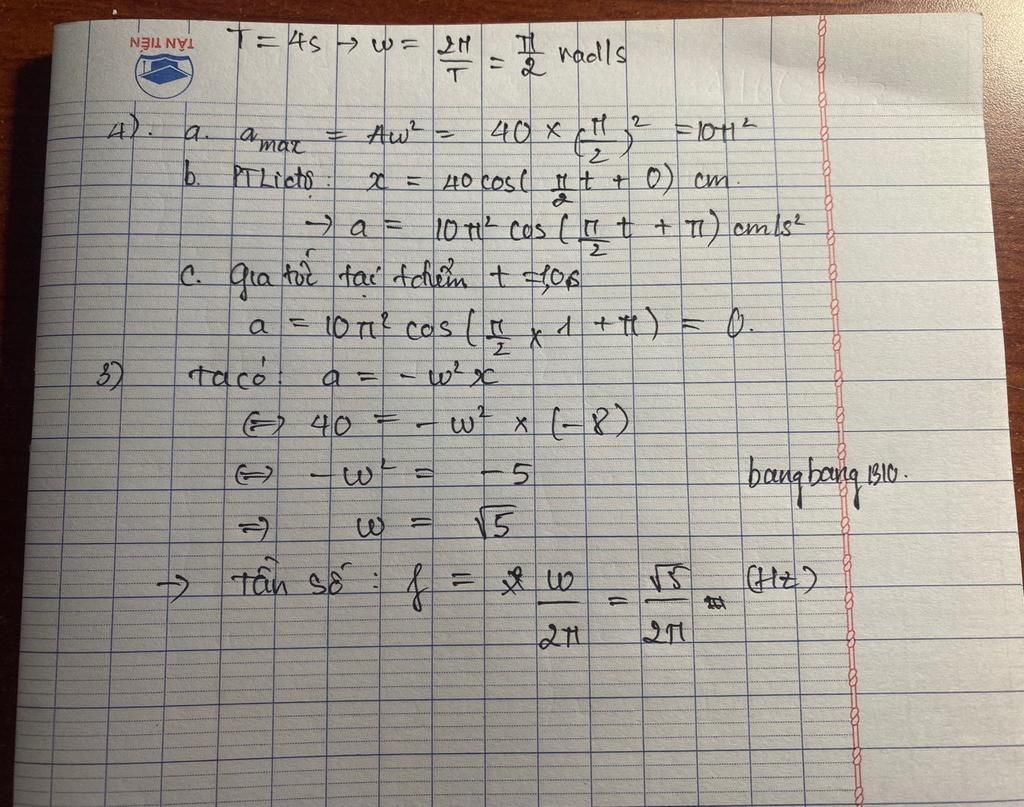 TÂN TIẾN
T = 4s → ω = 2π/T = π/2 rad/s
4). a. a_max = Aω² = 40 × (π/2)² = 10π²
b. PTLiđộ: x = 40 cos(π/2 t + 0) cm.
→ a = 10π² cos(π/2 t + π) cm/s²
c. gia tốc tại tđiểm t = 1,0s
a = 10π² cos(π/2 × 1 + π) = 0.
3) ta có: a = -ω²x
⇔ 40 = -ω² × (-8)
⇔ -ω² = -5
bangbang1310.
⇒ ω = √5
→ tần số: f = ω/2π = √5/2π (Hz)